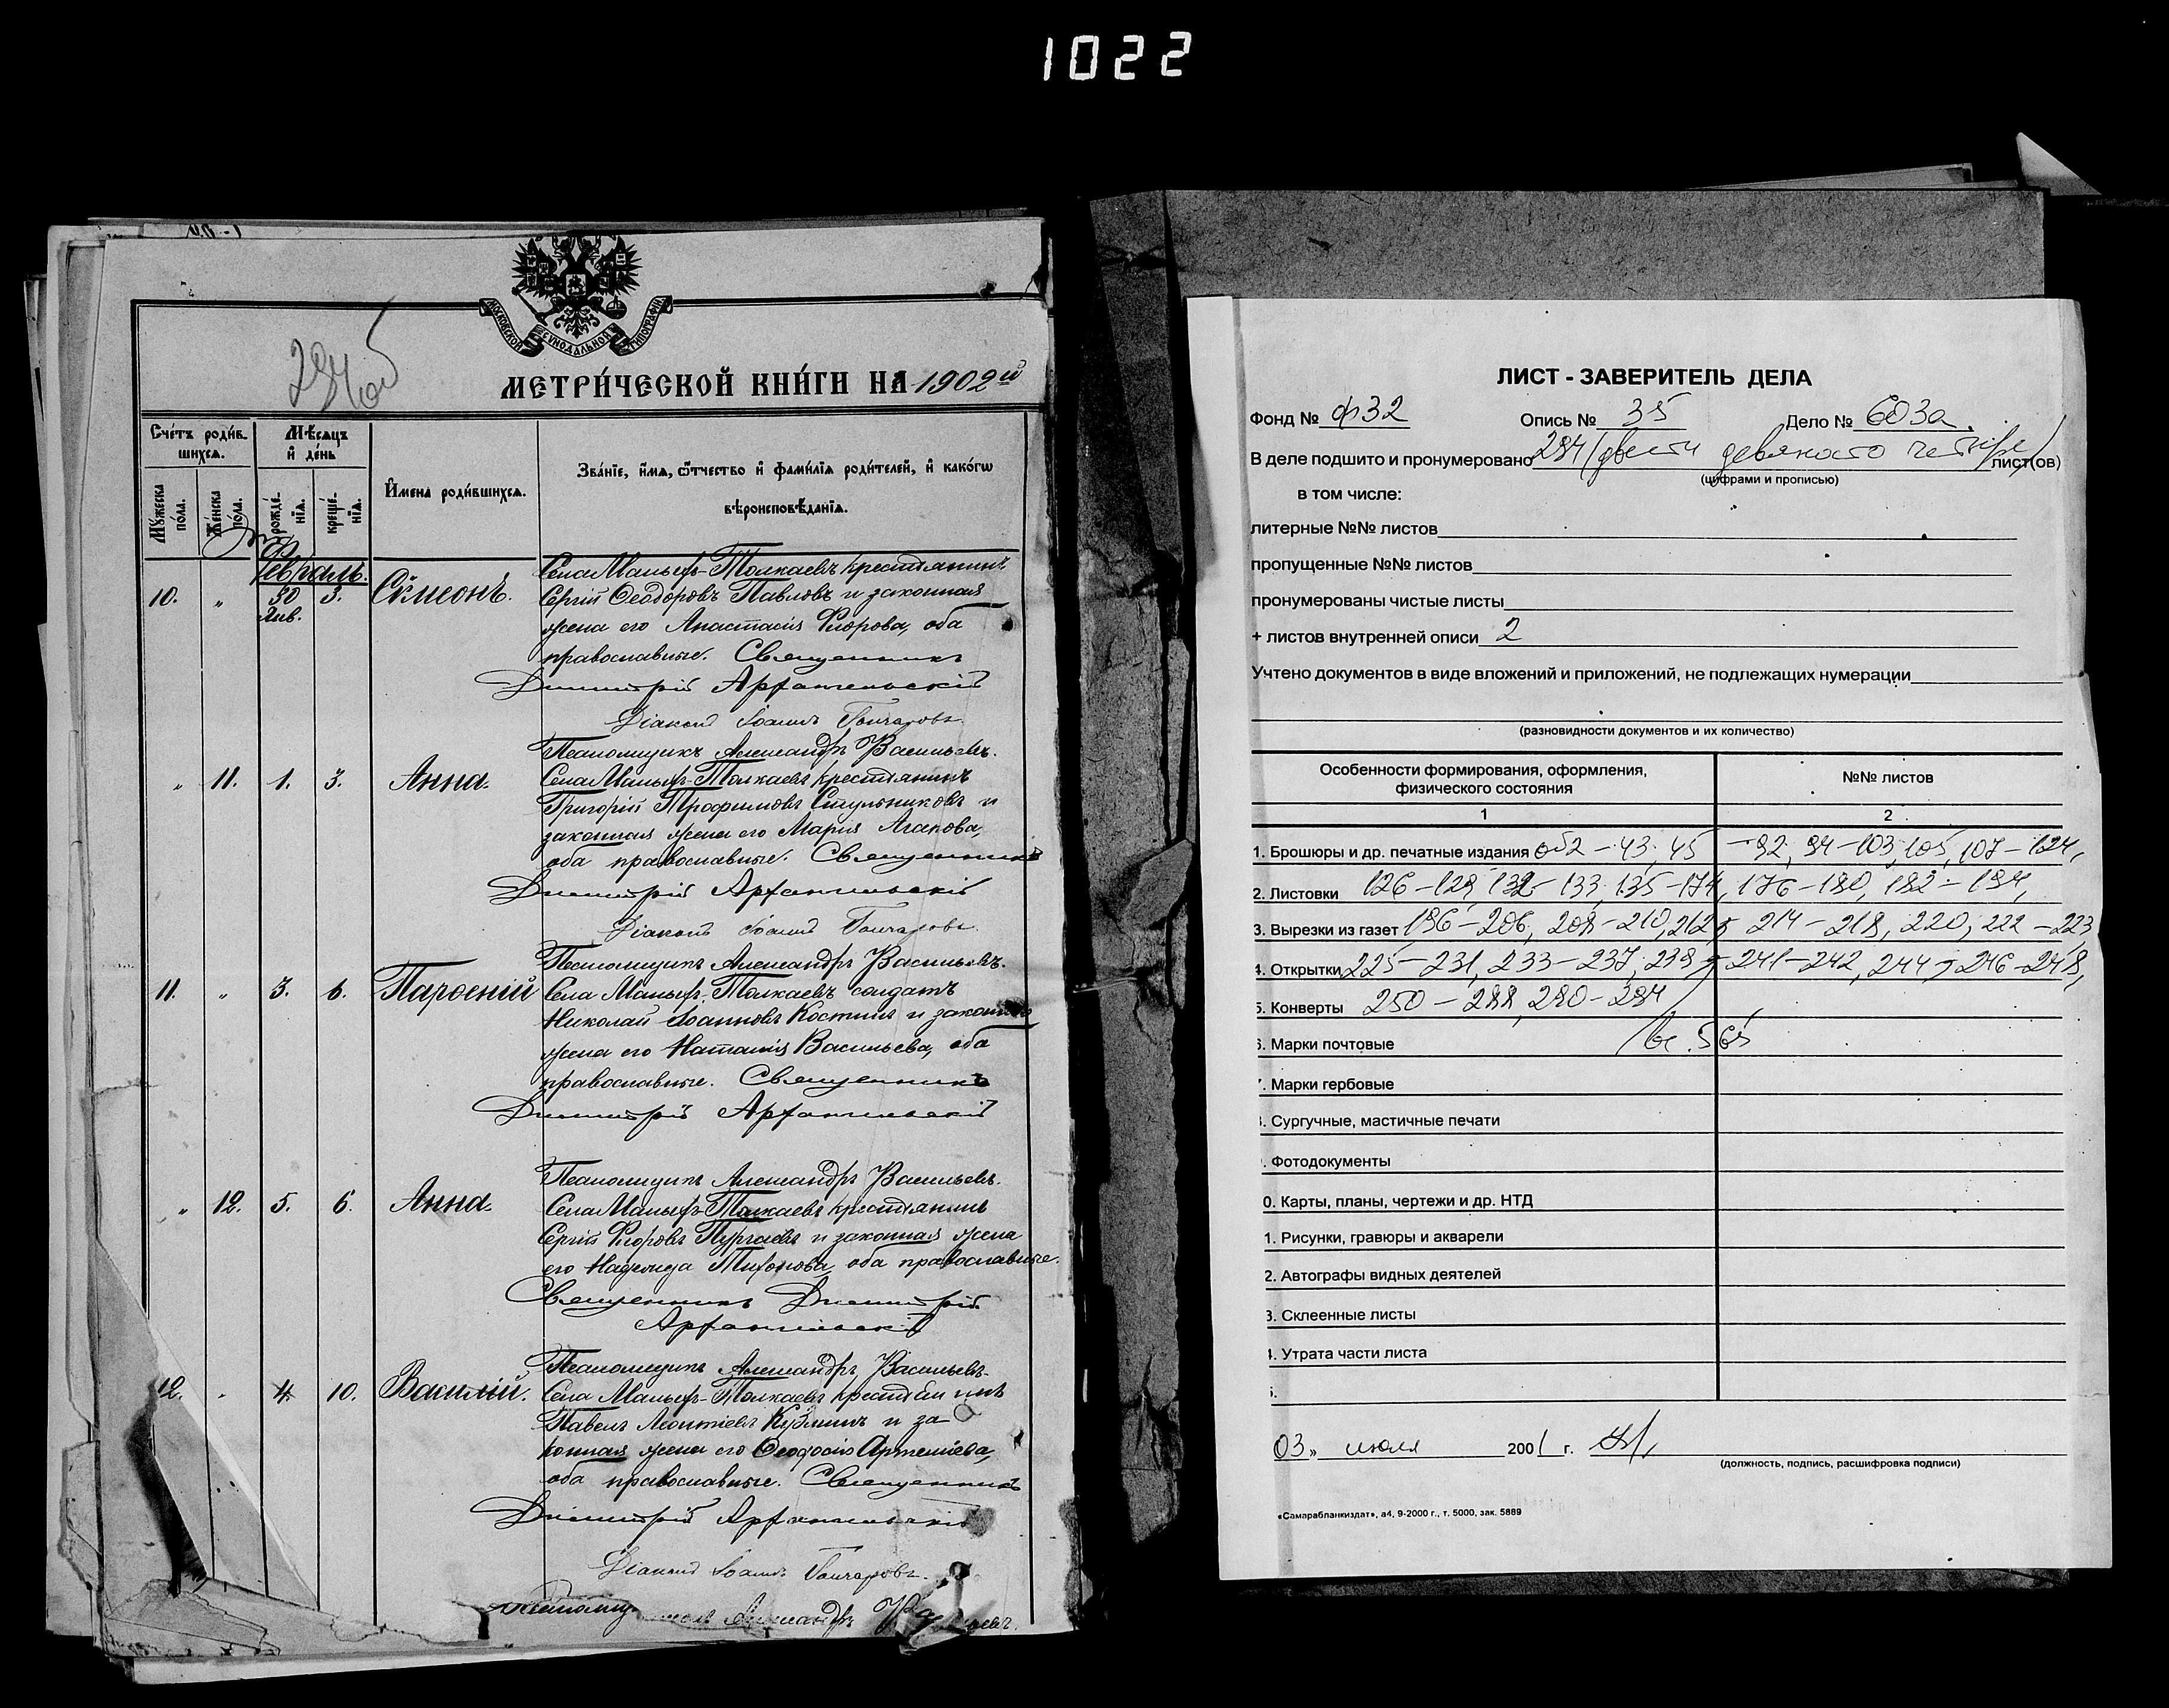 1022
МОСКОВСКОЙ СѴНОДАЛЬНОЙ ТИПОГРАФІИ
294об
МЕТРИ́ЧЕСКОЙ КНИ́ГИ НА 1902й
Сче́тъ роди́вшихся.
Мѣ́сяцъ и҆ де́нь
И҆мена роди́вшихся.
Зва́нїе, и҆́мя, ѻ҆́тчество и҆ фами́лїя роди́телей, и҆ како́гѡ вѣроисповѣ́данїя.
Мꙋ́жеска по́ла.
Же́нска по́ла.
рожде́нїя.
креще́нїя.
Февраль.
10. " 30 Янв. 3. Сѵмеонъ.
Села Малыхъ-Толкаевъ крестьянинъ
Сергій Ѳеодоровъ Павловъ и законная
жена его Анастасія Флорова, оба
православные. Священникъ
Димитрій Архангельскій
Діаконъ Іоаннъ Гончаровъ.
Псаломщикъ Александръ Васильевъ.
" 11. 1. 3. Анна.
Села Малыхъ-Толкаевъ крестьянинъ
Григорій Трофимовъ Стульниковъ и
законная жена его Марія Агапова,
оба православные. Священникъ
Димитрій Архангельскій
Діаконъ Іоаннъ Гончаровъ.
Псаломщикъ Александръ Васильевъ.
11. " 3. 6. Парѳеній
Села Малыхъ-Толкаевъ солдатъ
Николай Іоанновъ Костинъ и законная
жена его Наталія Васильева, оба
православные. Священникъ
Димитрій Архангельскій
Псаломщикъ Александръ Васильевъ.
" 12. 5. 6. Анна.
Села Малыхъ-Толкаевъ крестьянинъ
Сергій Флоровъ Пургаевъ и законная жена
его Надежда Тихонова, оба православные.
Священникъ Димитрій
Архангельскій
Псаломщикъ Александръ Васильевъ.
12. " 4. 10. Василій.
Села Малыхъ-Толкаевъ крестьянинъ
Павелъ Леонтіевъ Кузминъ и за
конная жена его Ѳеодосія Артеміева,
оба православные. Священникъ
Димитрій Архангельскій
Діаконъ Іоаннъ Гончаровъ.
Александръ
ЛИСТ - ЗАВЕРИТЕЛЬ ДЕЛА
Фонд № ф32 Опись № 35 Дело № 603а.
В деле подшито и пронумеровано 294 (двести девяносто четыре) лист(ов)
(цифрами и прописью)
в том числе:
литерные №№ листов
пропущенные №№ листов
пронумерованы чистые листы
+ листов внутренней описи 2
Учтено документов в виде вложений и приложений, не подлежащих нумерации
(разновидности документов и их количество)
Особенности формирования, оформления, физического состояния
№№ листов
1 2
1. Брошюры и др. печатные издания об2 - 43, 45 - 92, 94 - 103, 105, 107 - 124,
2. Листовки 126 - 129, 132 - 133, 135 - 174, 176 - 180, 182 - 194,
3. Вырезки из газет 196 - 206, 208 - 210, 212, 214 - 218, 220, 222 - 223
4. Открытки 225 - 231, 233 - 237, 239, 241 - 242, 244, 246 - 248,
5. Конверты 250 - 288, 290 - 294
6. Марки почтовые
7. Марки гербовые
. Сургучные, мастичные печати
. Фотодокументы
0. Карты, планы, чертежи и др. НТД
1. Рисунки, гравюры и акварели
2. Автографы видных деятелей
3. Склеенные листы
4. Утрата части листа
5.
03» июля 2001 г.
(должность, подпись, расшифровка подписи)
«Самарабланкиздат», а4, 9-2000 г., т. 5000, зак. 5889